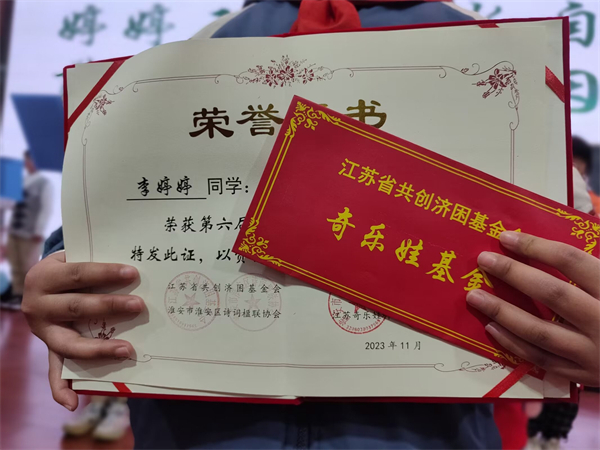 婷婷
荣誉 书
李婷婷 同学：
荣获第六届
特发此证，以资
江苏省共创济困基金会
淮安市淮安区诗词楹联协会
江苏奇乐娃
2023 年 11 月
江苏省共创济困基金会
奇乐娃基金